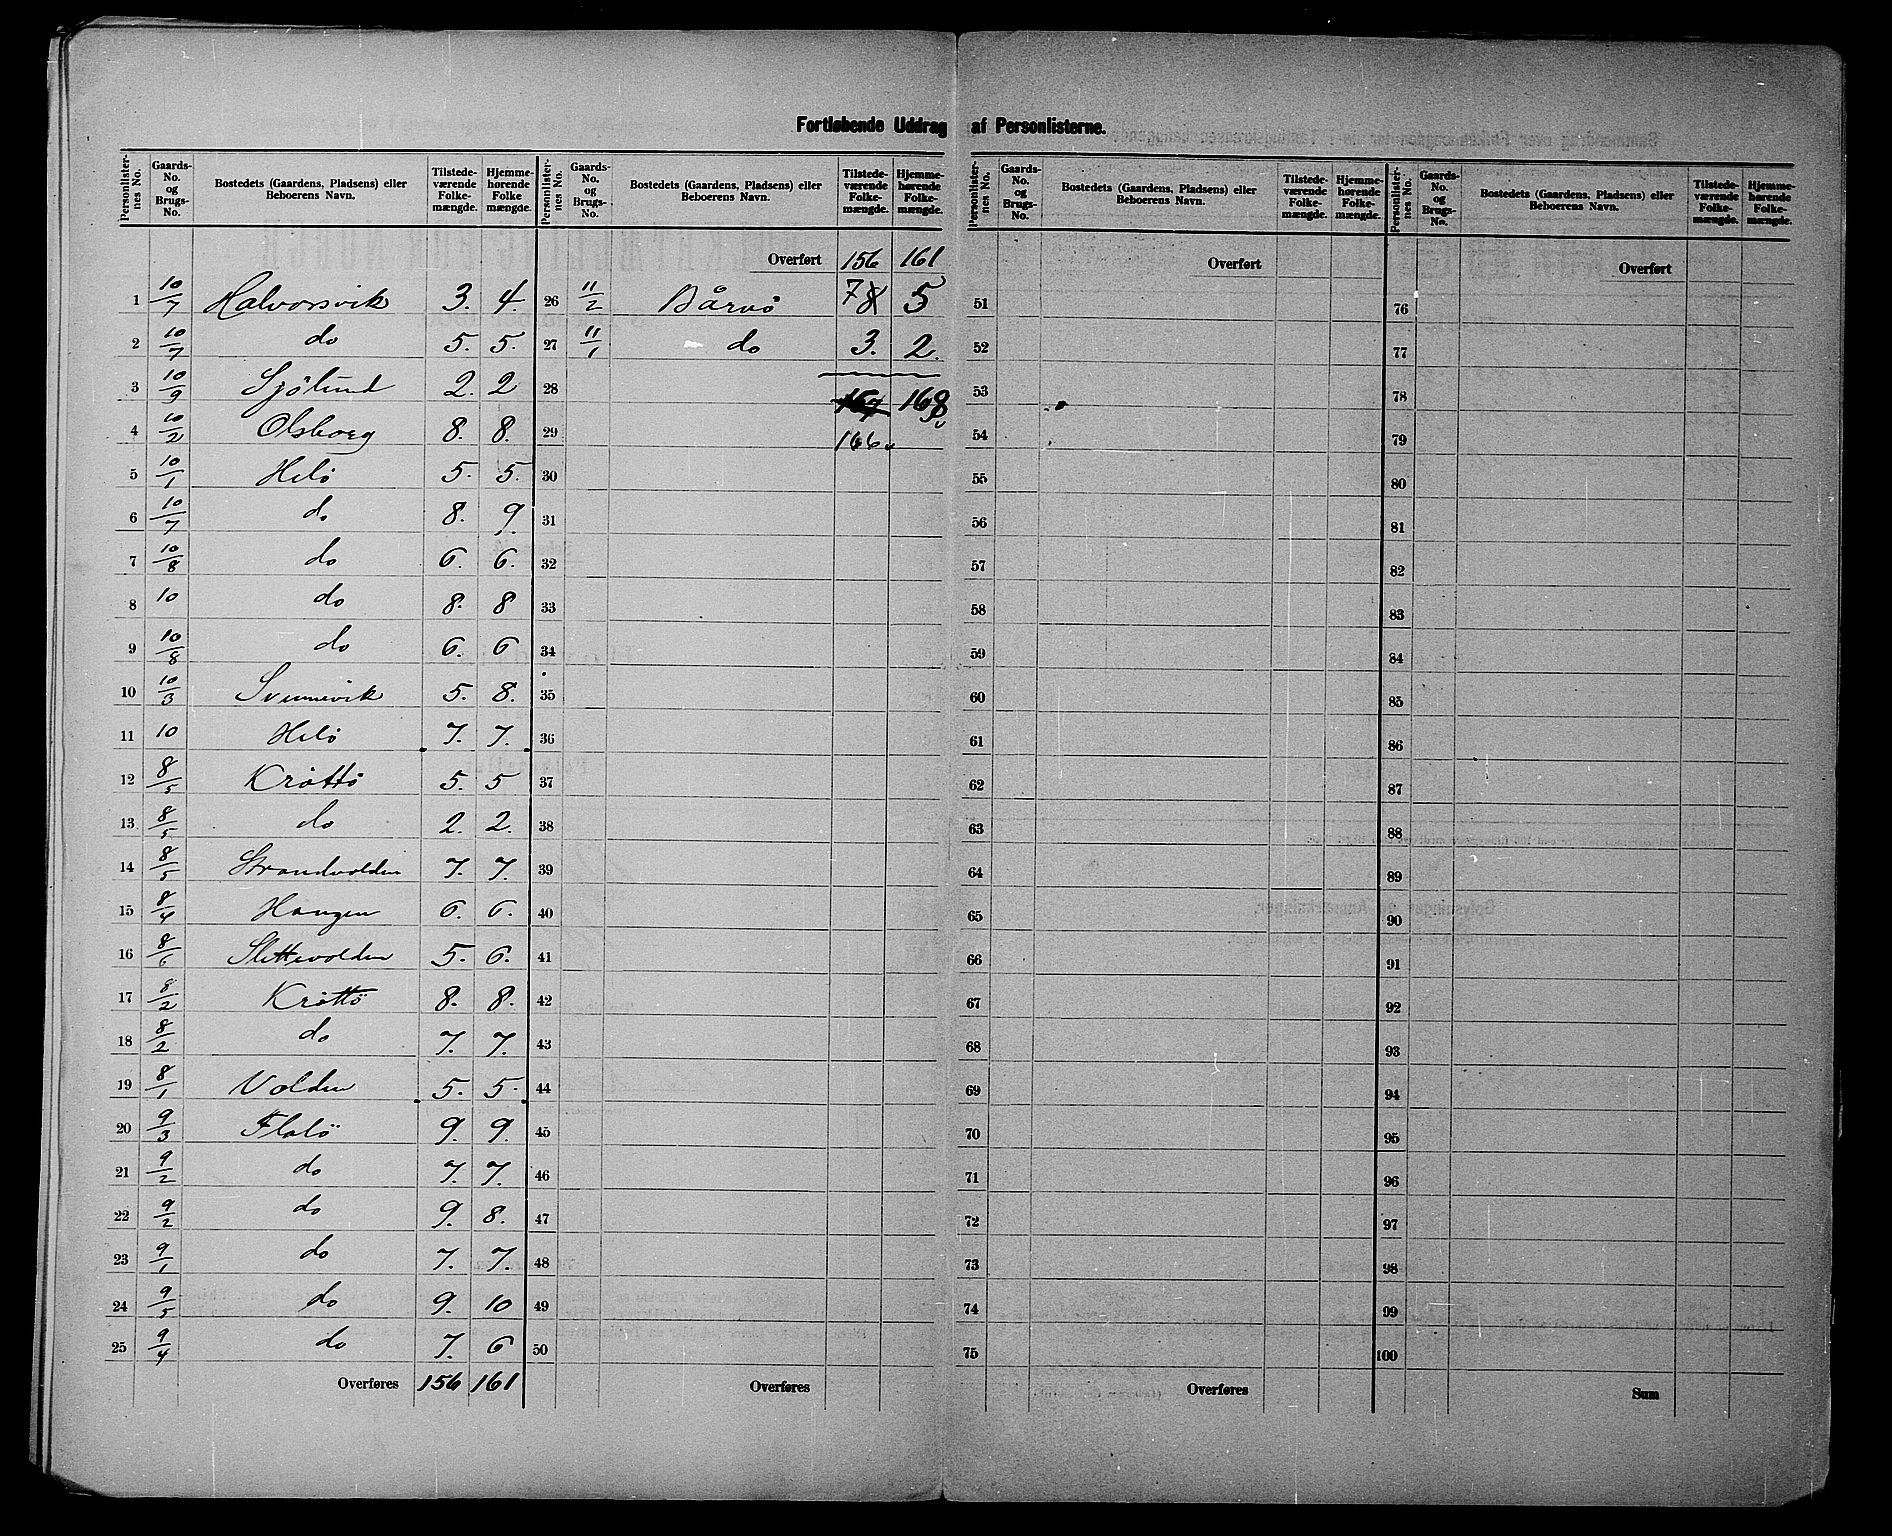 Fortløbende Uddrag af Personlisterne.
Personlister-nes No. Gaards-No. og Brugs-No. Bostedets (Gaardens, Pladsens) eller Beboerens Navn. Tilstede-værende Folke-mængde. Hjemme-hørende Folke mængde.
Personlister-nes No. Gaards-No. og Brugs-No. Bostedets (Gaardens, Pladsens) eller Beboerens Navn. Tilstede-værende Folke-mængde. Hjemme-hørende Folke-mængde.
Personlister-nes No. Gaards-No. og Brugs-No. Bostedets (Gaardens, Pladsens) eller Beboerens Navn. Tilstede-værende Folke-mængde. Hjemme-hørende Folke-mængde.
Personlister-nes No. Gaards-No. og Brugs-No. Bostedets (Gaardens, Pladsens) eller Beboerens Navn. Tilstede-værende Folke-mængde. Hjemme-hørende Folke-mængde.
1 10/7 Halvorsvik 3. 4.
2 10/7 do 5. 5.
3 10/9 Sjølund 2. 2
4 10/2 Olsborg 8. 8.
5 10/1 Helö 5. 5.
6 10/7 do 8. 9.
7 10/8 do 6. 6.
8 10 do 8. 8
9 10/8 do 6. 6
10 10/3 Svennevik 5. 8.
11 10 Helö 7. 7.
12 8/5 Kråttö 5. 5
13 8/5 do 2. 2.
14 8/5 Strandvolden 7. 7.
15 8/4 Haugen 6. 6.
16 8/6 Slettevolden 5. 6.
17 8/2 Kråttö 8. 8.
18 8/2 do 7. 7.
19 8/1 Volden 5. 5.
20 9/3 Flalö 9. 9.
21 9/2 do 7. 7.
22 9/2 do 9. 8.
23 9/1 do 7. 7.
24 9/5 do 9. 10
25 9/4 do 7. 6
Overføres 156 161
Overført 156 161
26 11/2 Bårvö 7 8 5
27 11/1 do 3. 2.
28 167 168
29 166
30
31
32
33
34
35
36
37
38
39
40
41
42
43
44
45
46
47
48
49
50
Overføres
Overført
51
52
53
54
55
56
57
58
59
60
61
62
63
64
65
66
67
68
69
70
71
72
73
74
75
Overføres
Overført
76
77
78
79
80
81
82
83
84
85
86
87
88
89
90
91
92
93
94
95
96
97
98
99
100
Sum